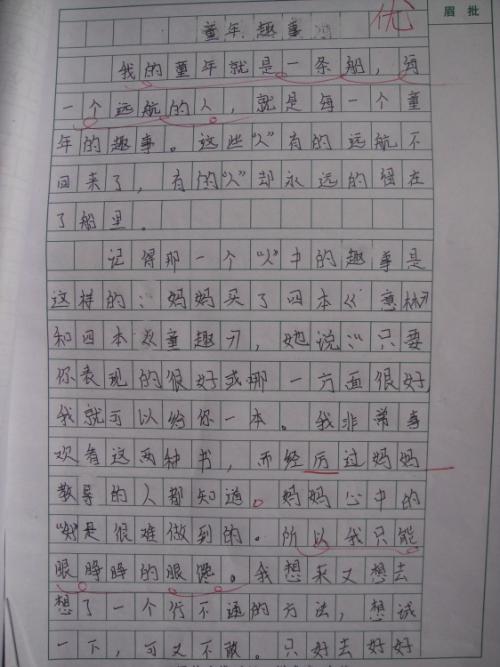 眉批
优
童年趣事
我的童年就是一条船，每
一个远航的人，就是每一个童
年的趣事。这些“人”有的远航不
回来了，有的“人”却永远的留在
了船里。
记得那一个“人”中的趣事是
这样的：妈妈买了四本《意林》
和四本《童趣》，她说：“只要
你表现的很好或哪一方面很好，
我就可以给你一本。我非常喜
欢看这两种书，而经厉过妈妈
教导的人都知道。妈妈心中的
“好”是很难做到的。所以我只能
眼睁睁的眼馋。我想来又想去
想了一个行不通的方法，想试
一下，可又不敢。只好去好好